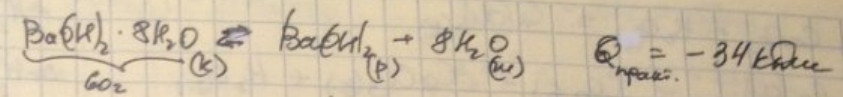 Ba(OH)₂ · 8H₂O (к) ⇌ Ba(OH)₂ (р) + 8H₂O (ж) Q практ. = - 34 кДж
60г